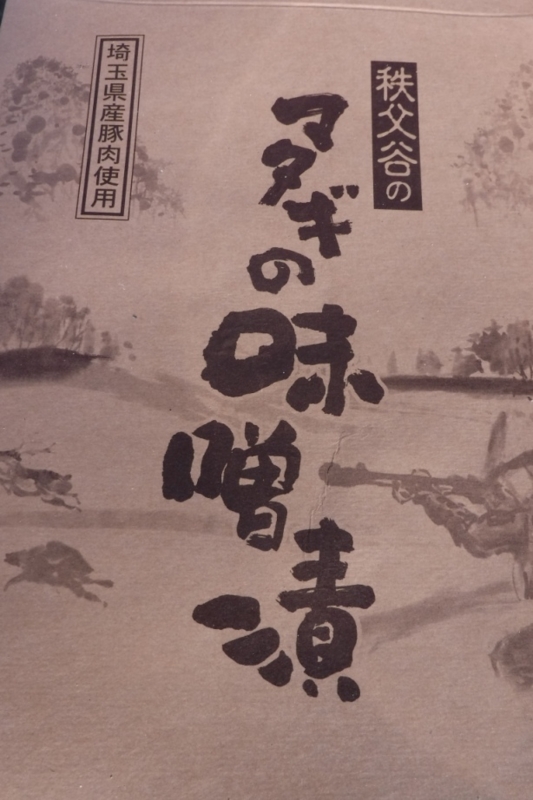 秩父谷の
マタギの味噌漬
埼玉県産豚肉使用